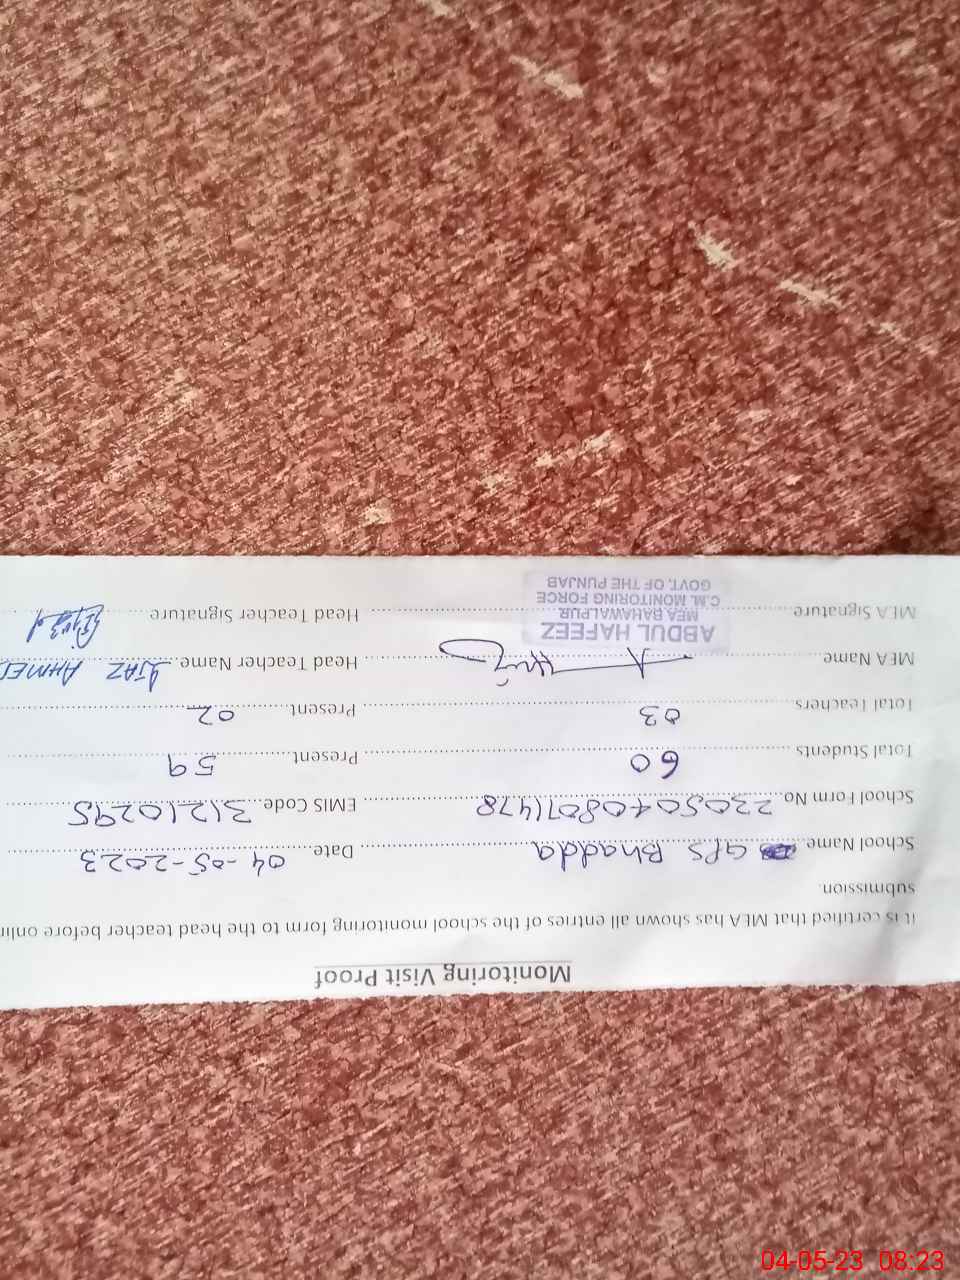 Monitoring Visit Proof
it is certified that MEA has shown all entries of the school monitoring form to the head teacher before onlin
submission.
School Name GPS Bhadda Date 04-05-2023
School Form No 23050408071478 EMIS Code 31210295
Total Students 60 Present 59
Total Teachers 03 Present 02
MEA Name Head Teacher Name IJAZ AHMED
MEA Signature Head Teacher Signature
ABDUL HAFEEZ
MEA BAHAWALPUR
C.M. MONITORING FORCE
GOVT. OF THE PUNJAB
04-05-23 08:23